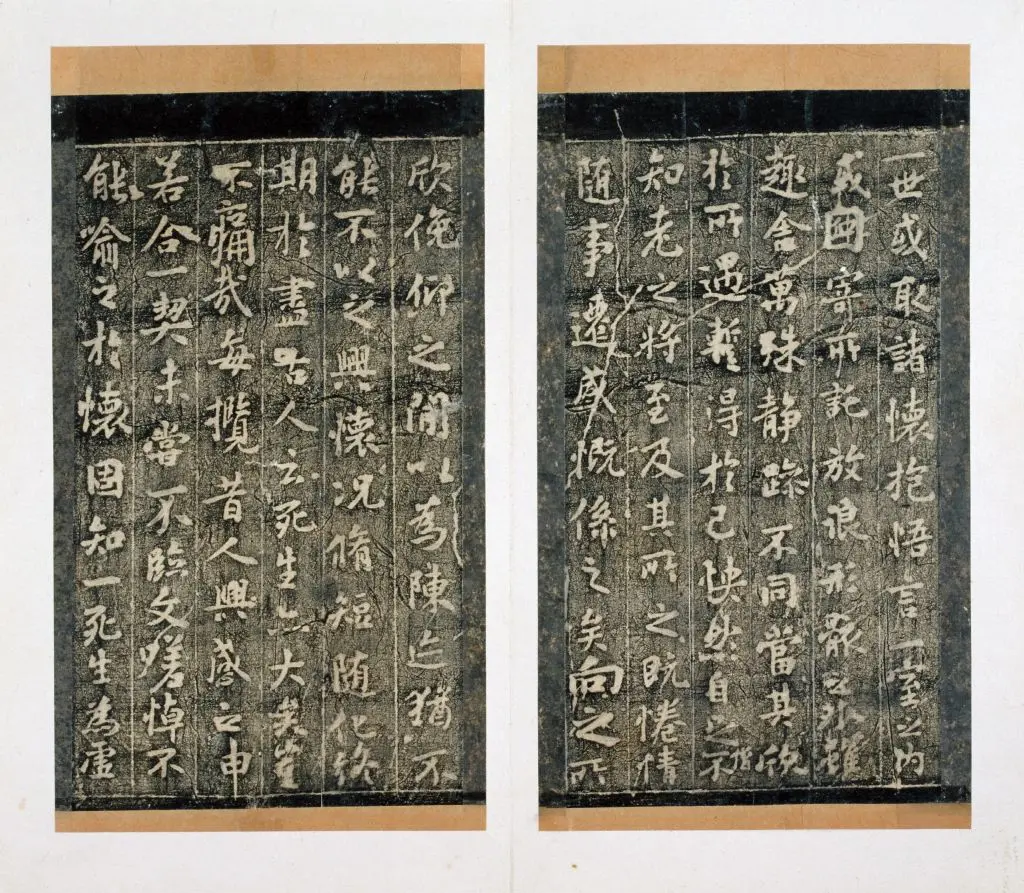 一世或取諸懷抱悟言一室之內
或因寄所託放浪形骸之外雖
趣舍萬殊靜躁不同當其欣
於所遇暫得於己快然自足不
知老之將至及其所之既惓情
隨事遷感慨係之矣向之所
欣俛仰之閒以為陳迹猶不
能不以之興懷況脩短隨化終
期於盡古人云死生亦大矣豈
不痛哉每攬昔人興感之由
若合一契未嘗不臨文嗟悼不
能喻之於懷固知一死生為虛